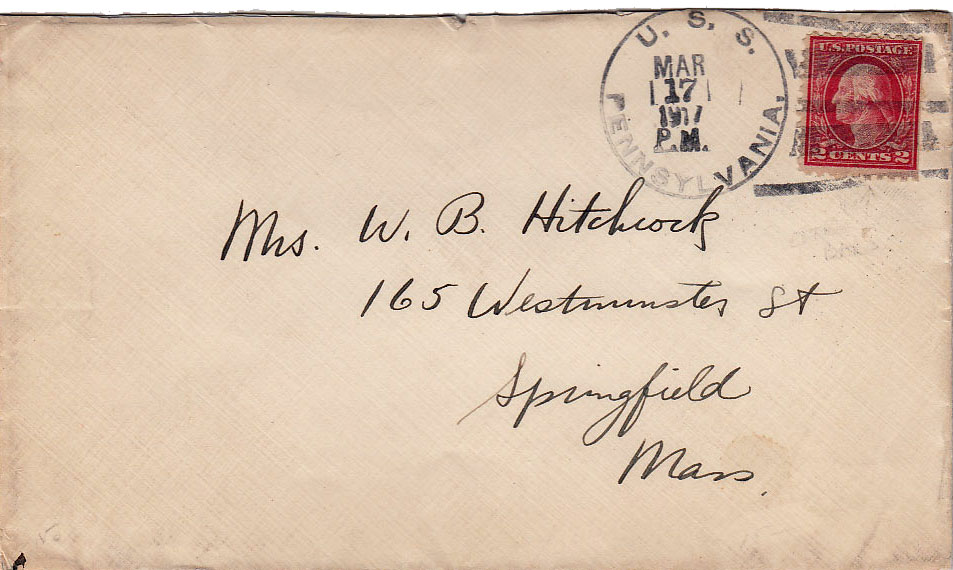 U. S. S.
PENNSYLVANIA,
MAR
17
1917
P.M.
U.S. POSTAGE
2 CENTS 2
Mrs. W. B. Hitchcock
165 Westminster St
Springfield
Mass.